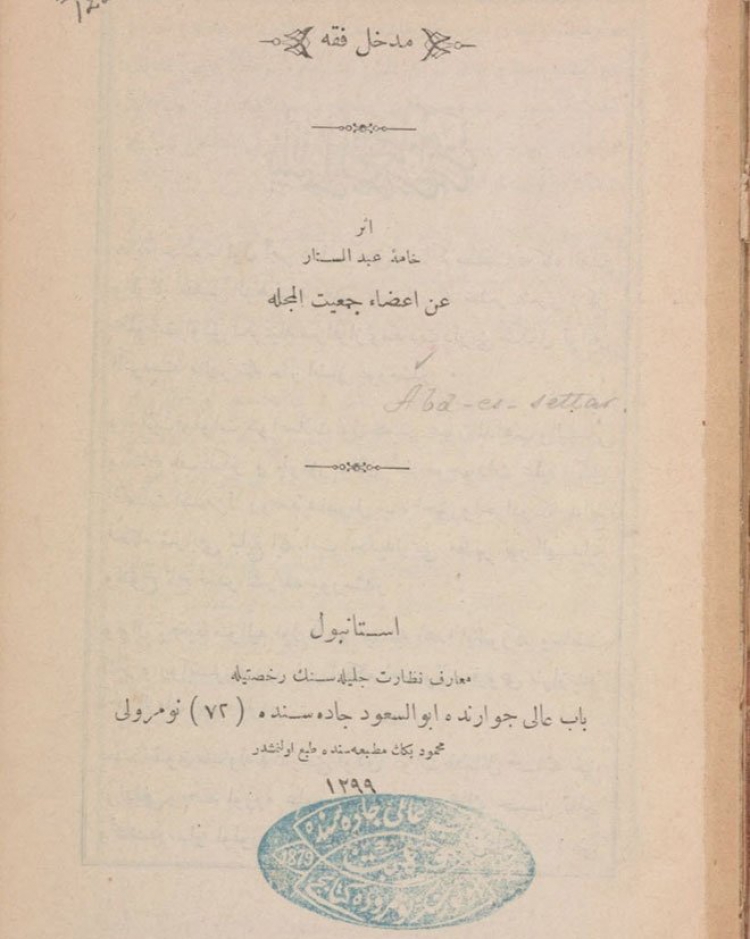 مدخل فقه
اثر
خامۀ عبد الستار
عن اعضاء جمعيت المجله
Abd-es-settar.
استانبول
معارف نظارت جليله‌سنك رخصتيله
باب عالى جوارنده ابوالسعود جاده‌سنده (٧٢) نومرولى
محمود بكك مطبعه‌سنده طبع اولنمشدر
١٢٩٩
عالى جاده‌سنده
1879